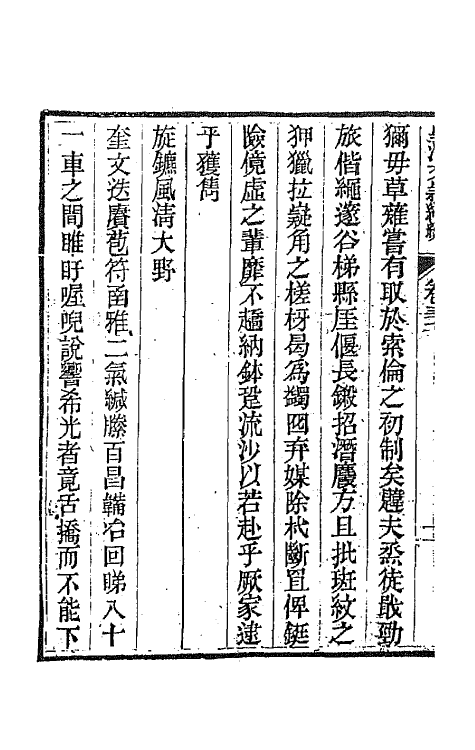 獮毋草薙嘗有取於索倫之初制矣躠夫烝徒戢勁
旅偕繩邃谷梯縣厓偃長鎩招潛麌方且批斑紋之
狎獵拉嶷角之槎枒曷為蠲四弃媒除杙斷罝俾鋌
險僄虛之輩靡不趫納鉢跫流沙以若赴乎厥家逮
乎獲雋
旋鑣風清大野
奎文迭賡苞符南雅二氣緘縢百昌韛冶回睇入十
一車之間睢盱喔睨說響希光者竟舌撟而不能下